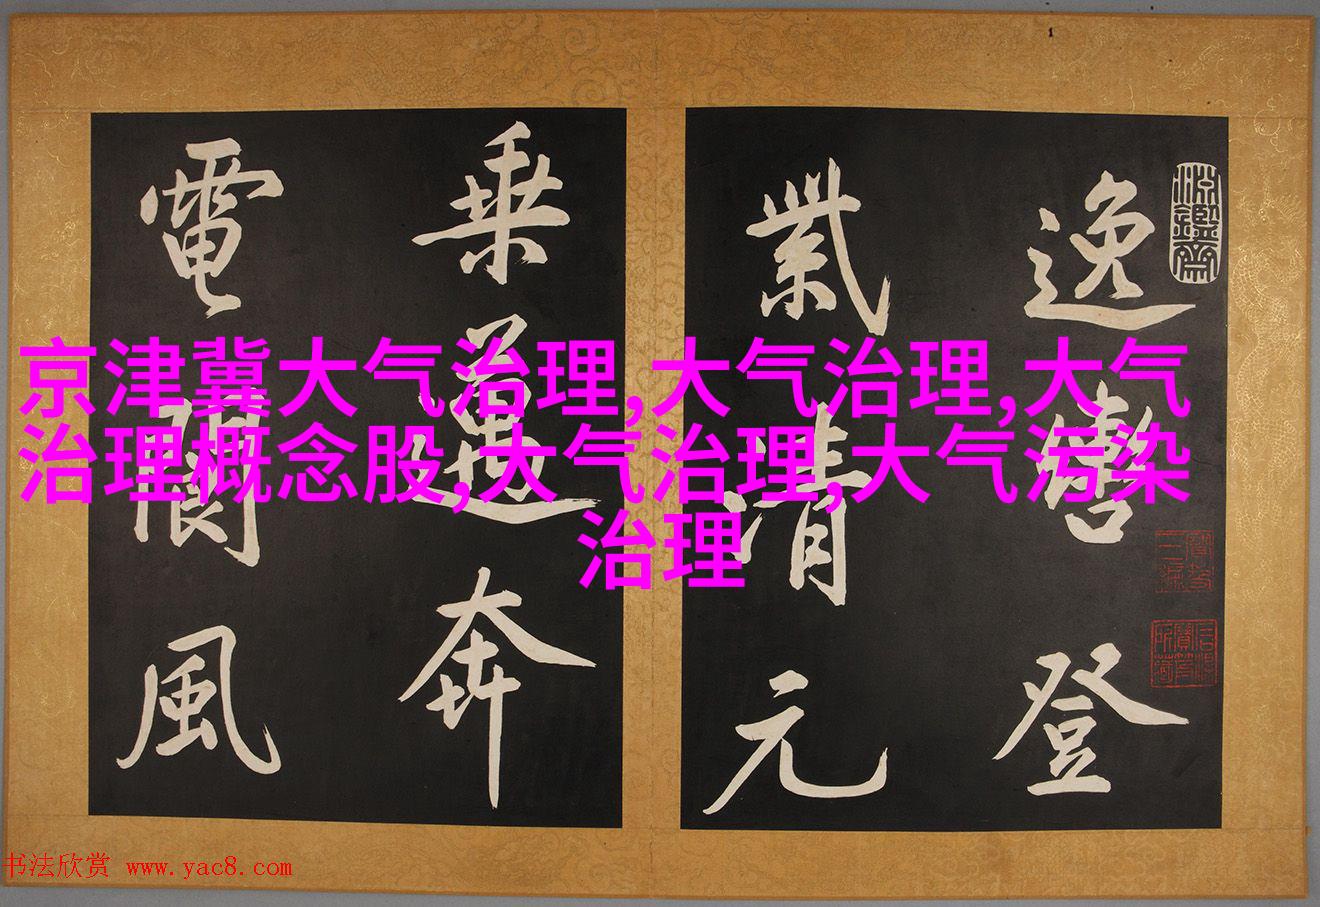 逸辔登
紫清元
乘遗奔
電閬風
京津冀大气治理,大气治理,大气
治理概念股,大气治理,大气污染
治理
书法欣赏 www.yac8.com